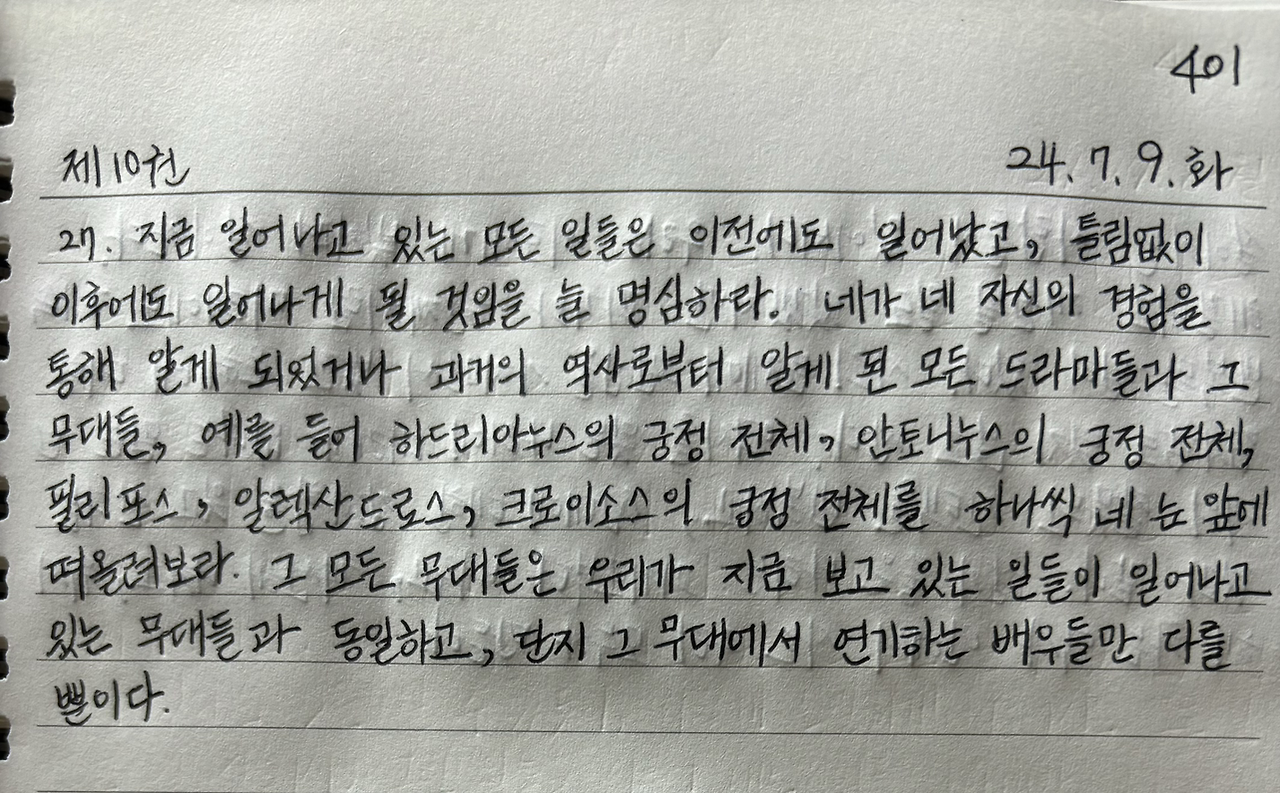 401
제10권 24.7.9.화
27. 지금 일어나고 있는 모든 일들은 이전에도 일어났고, 틀림없이
이후에도 일어나게 될 것임을 늘 명심하라. 네가 네 자신의 경험을
통해 알게 되었거나 과거의 역사로부터 알게 된 모든 드라마들과 그
무대들, 예를 들어 하드리아누스의 궁정 전체, 안토니누스의 궁정 전체,
필리포스, 알렉산드로스, 크로이소스의 궁정 전체를 하나씩 네 눈 앞에
떠올려보라. 그 모든 무대들은 우리가 지금 보고 있는 일들이 일어나고
있는 무대들과 동일하고, 단지 그 무대에서 연기하는 배우들만 다를
뿐이다.